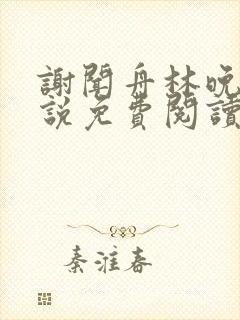 謝聞舟林晚
說免費閱讀
秦淮春